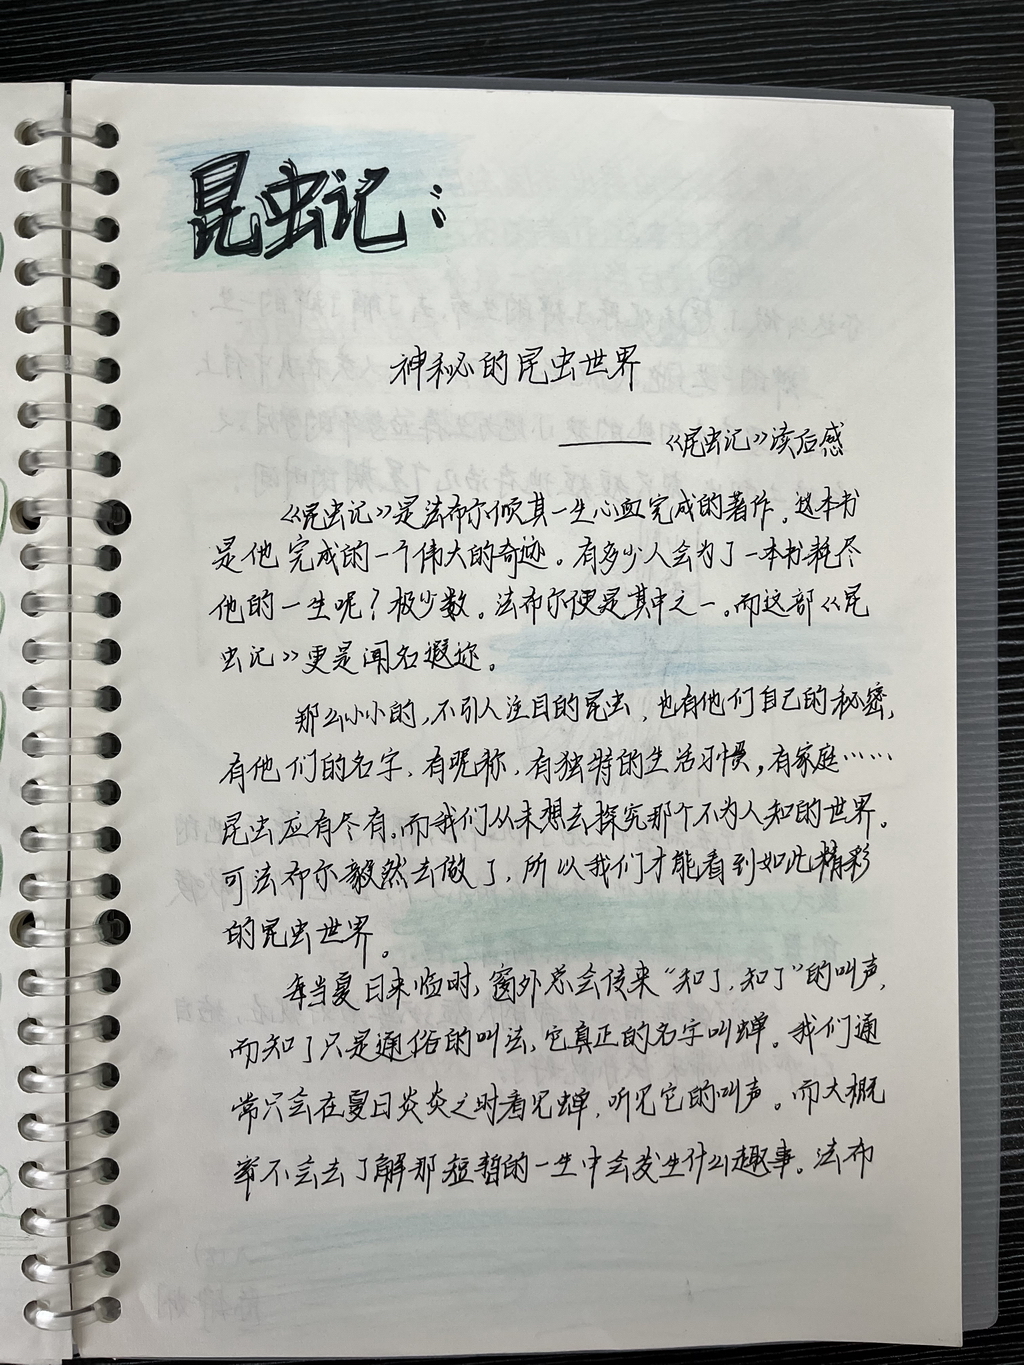 昆虫记：
神秘的昆虫世界
——《昆虫记》读后感
《昆虫记》是法布尔倾其一生心血完成的著作。这本书
是他完成的一个伟大的奇迹。有多少人会为了一本书耗尽
他的一生呢？极少数。法布尔便是其中之一。而这部《昆
虫记》更是闻名遐迩。
那么小小的，不引人注目的昆虫，也有他们自己的秘密，
有他们的名字，有昵称，有独特的生活习惯，有家庭……
昆虫应有尽有。而我们从未想去探究那个不为人知的世界。
可法布尔毅然去做了，所以我们才能看到如此精彩
的昆虫世界。
每当夏日来临时，窗外总会传来“知了，知了”的叫声，
而知了只是通俗的叫法，它真正的名字叫蝉。我们通
常只会在夏日炎炎之时看见蝉，听见它的叫声。而大概
率不会去了解那短暂的一生中会发生什么趣事。法布